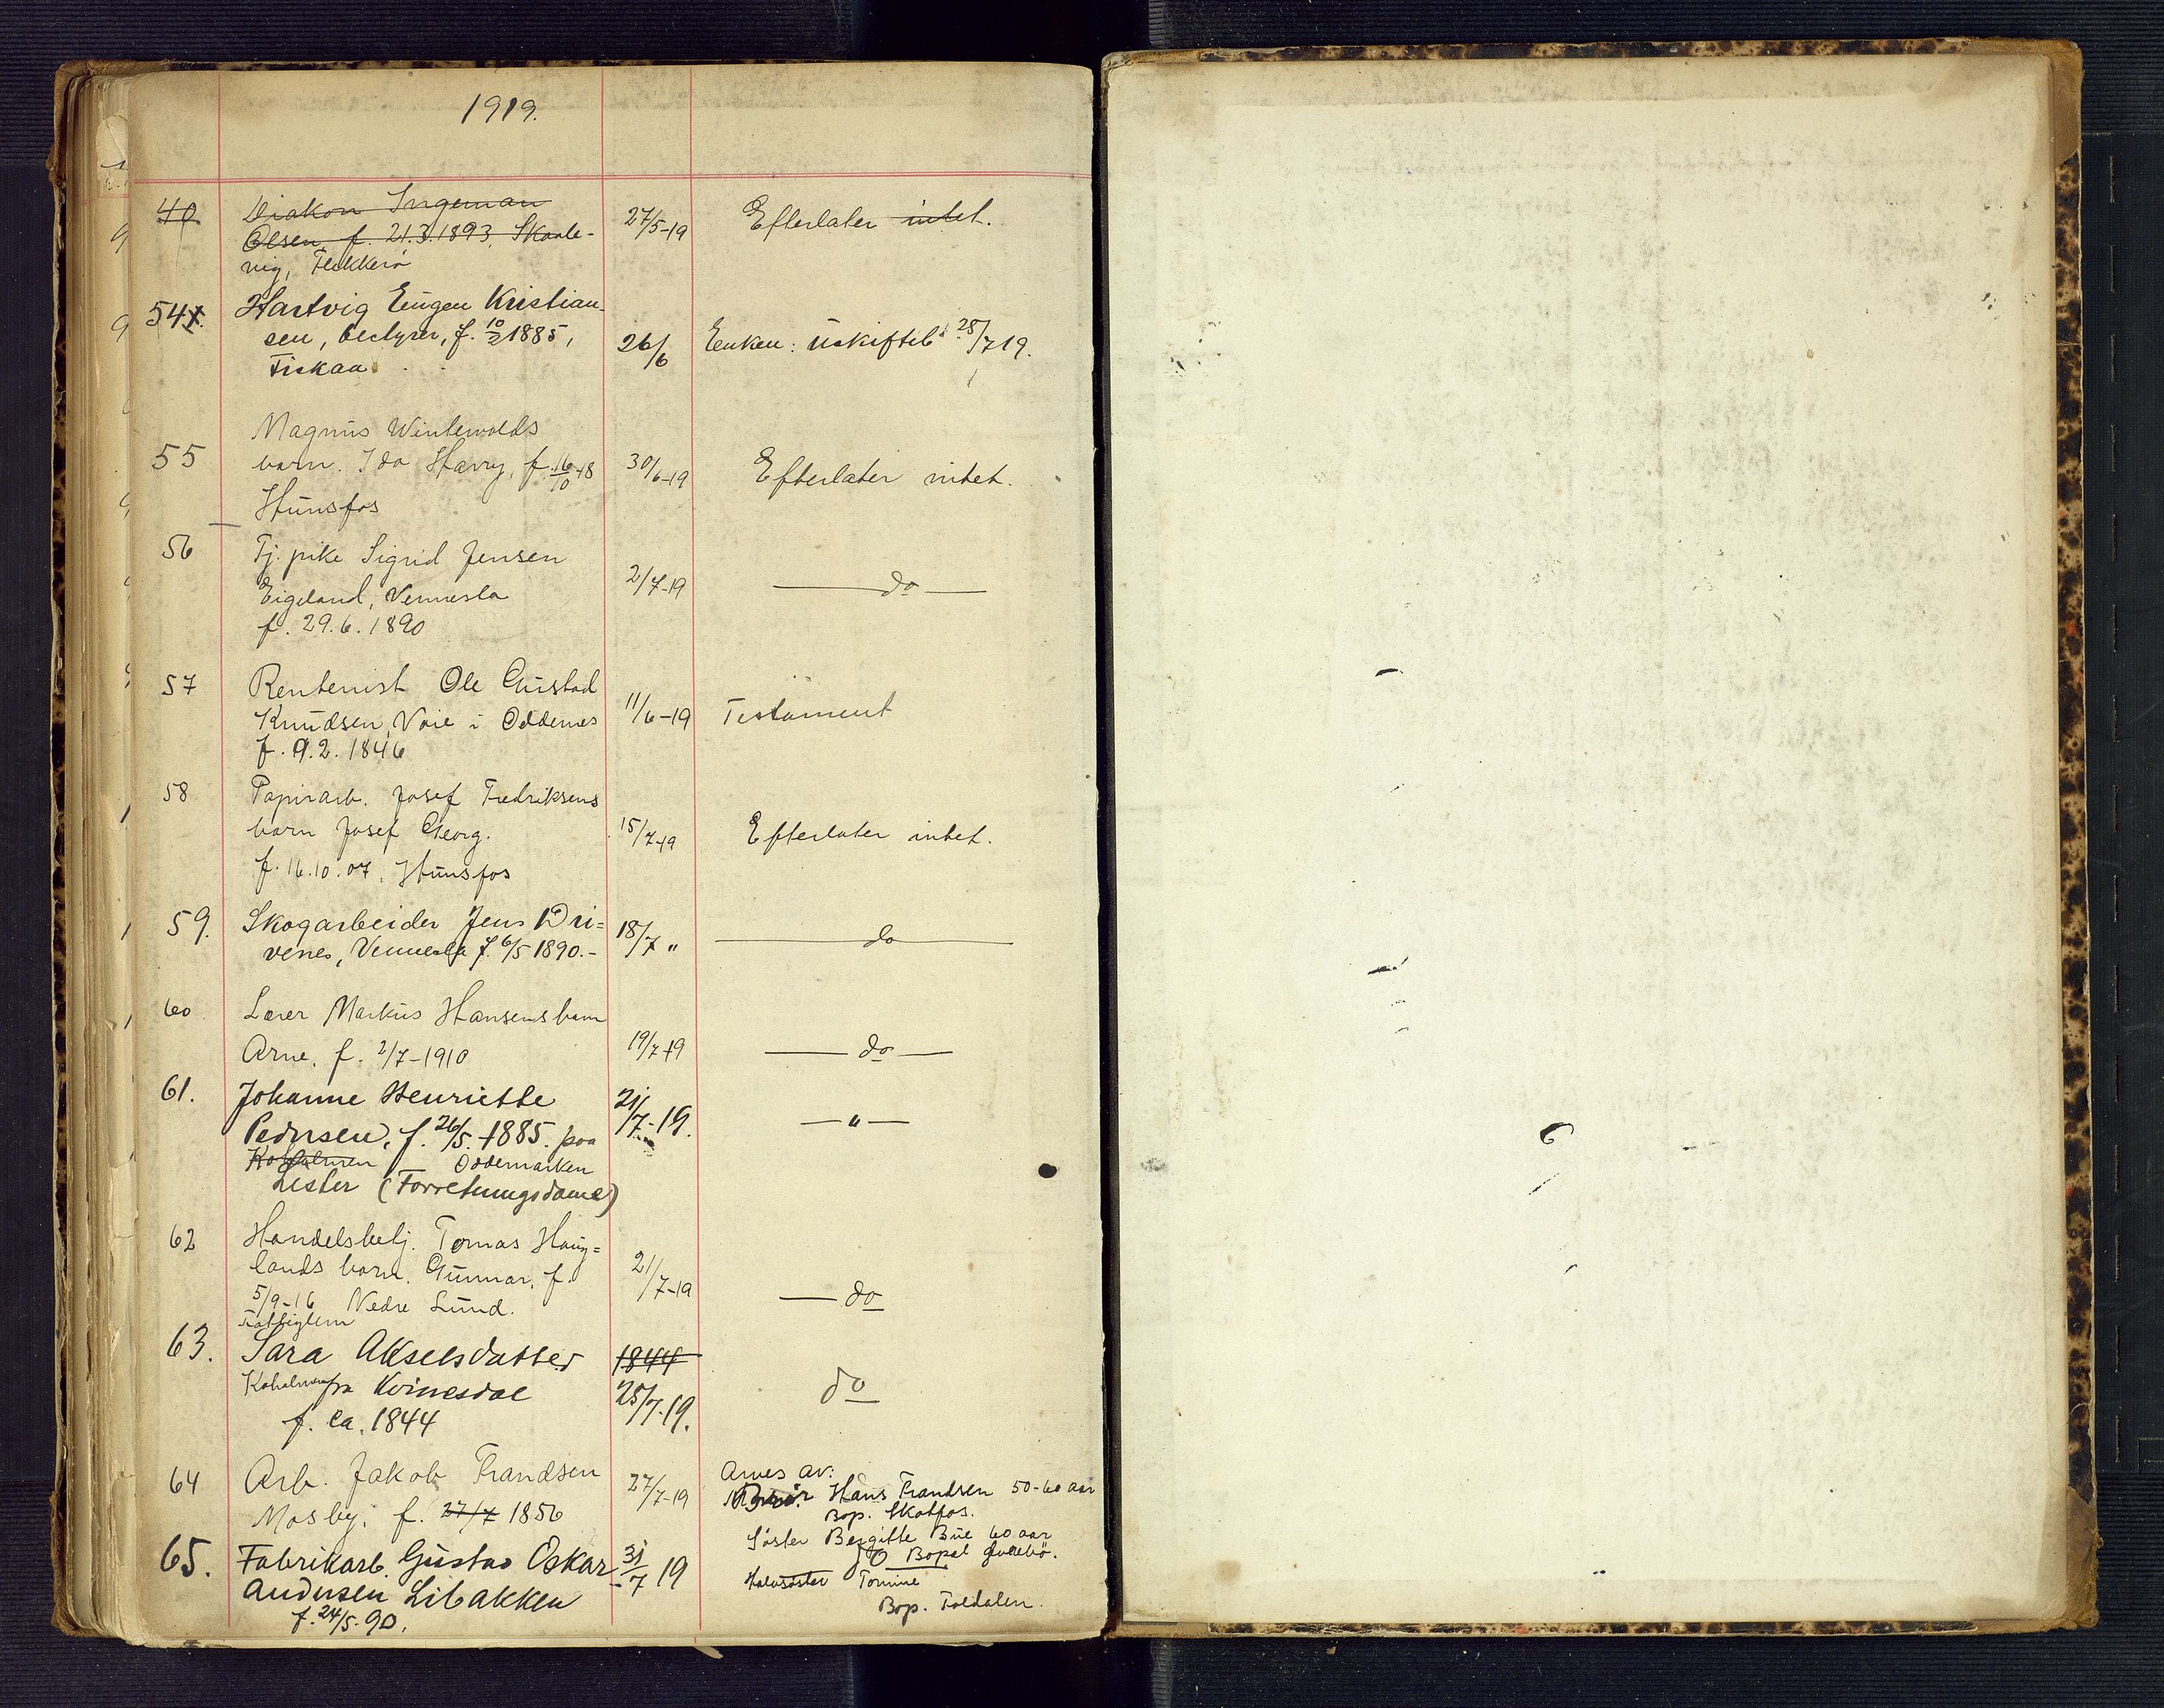 1919.
40 Diakon Ingeman
Olsen, f. 21.3.1893, Skaale-
vig, Flekkerø 27/5-19 Efterlater intet.
54 Hartvig Eugen Kristian-
sen, f. 10/2 1885,
Fiskaa 26/6 Enken: Uskifteb 28/7 19.
Magnus Wintervolds
55 barn. Ida Harry, f. 16/10-18
Hunsfos 30/6-19 Efterlater intet.
56 Tj. pike Sigrid Jensen
Eigeland, Vennesla
f. 29.6.1890 2/7-19 — do —
57 Rentenist Ole Gustad
Knudsen, Voie i Oddernes
f. 9.2.1846 11/6-19 Testament
58 Papirarb. Josef Fredriksens
barn Josef Georg.
f. 16.10.07, Hunsfos 15/7-19 Efterlater intet.
59. Skogarbeider Jens Dri=
venes, Vennesla f. 6/5 1890.- 18/7 " — do —
60 Lærer Markus Hansens barn
Arne, f. 2/7-1910 19/7-19 — do —
61. Johanne Henriette
Pedersen, f. 26/5. 1885. paa
Koholmen Oddemarken
Lister (Forretningsdame) 21/7-19. — " —
62 Handelsbetj. Tomas Haug=
lands barn. Gunnar, f.
5/9-16 Nedre Lund. 21/7-19 — do
Fattiglem
63. Sara Akselsdatter 1844
Koholmen fra Kvinesdal
f. ca. 1844 25/7-19. do
64 Arb. Jakob Frandsen
Mosby, f. 27/7 1856 27/7-19 Arves av:
Hans Frandsen 50-60 aar
Bop. Skotfos.
Søster Bergitte Bue 60 aar
Bopæl
Halvsøster Tomine
Bop. Foldalen.
65. Fabrikarb. Gustav Oskar
Andersen Libakken
f. 24/5-90. 31/7 19